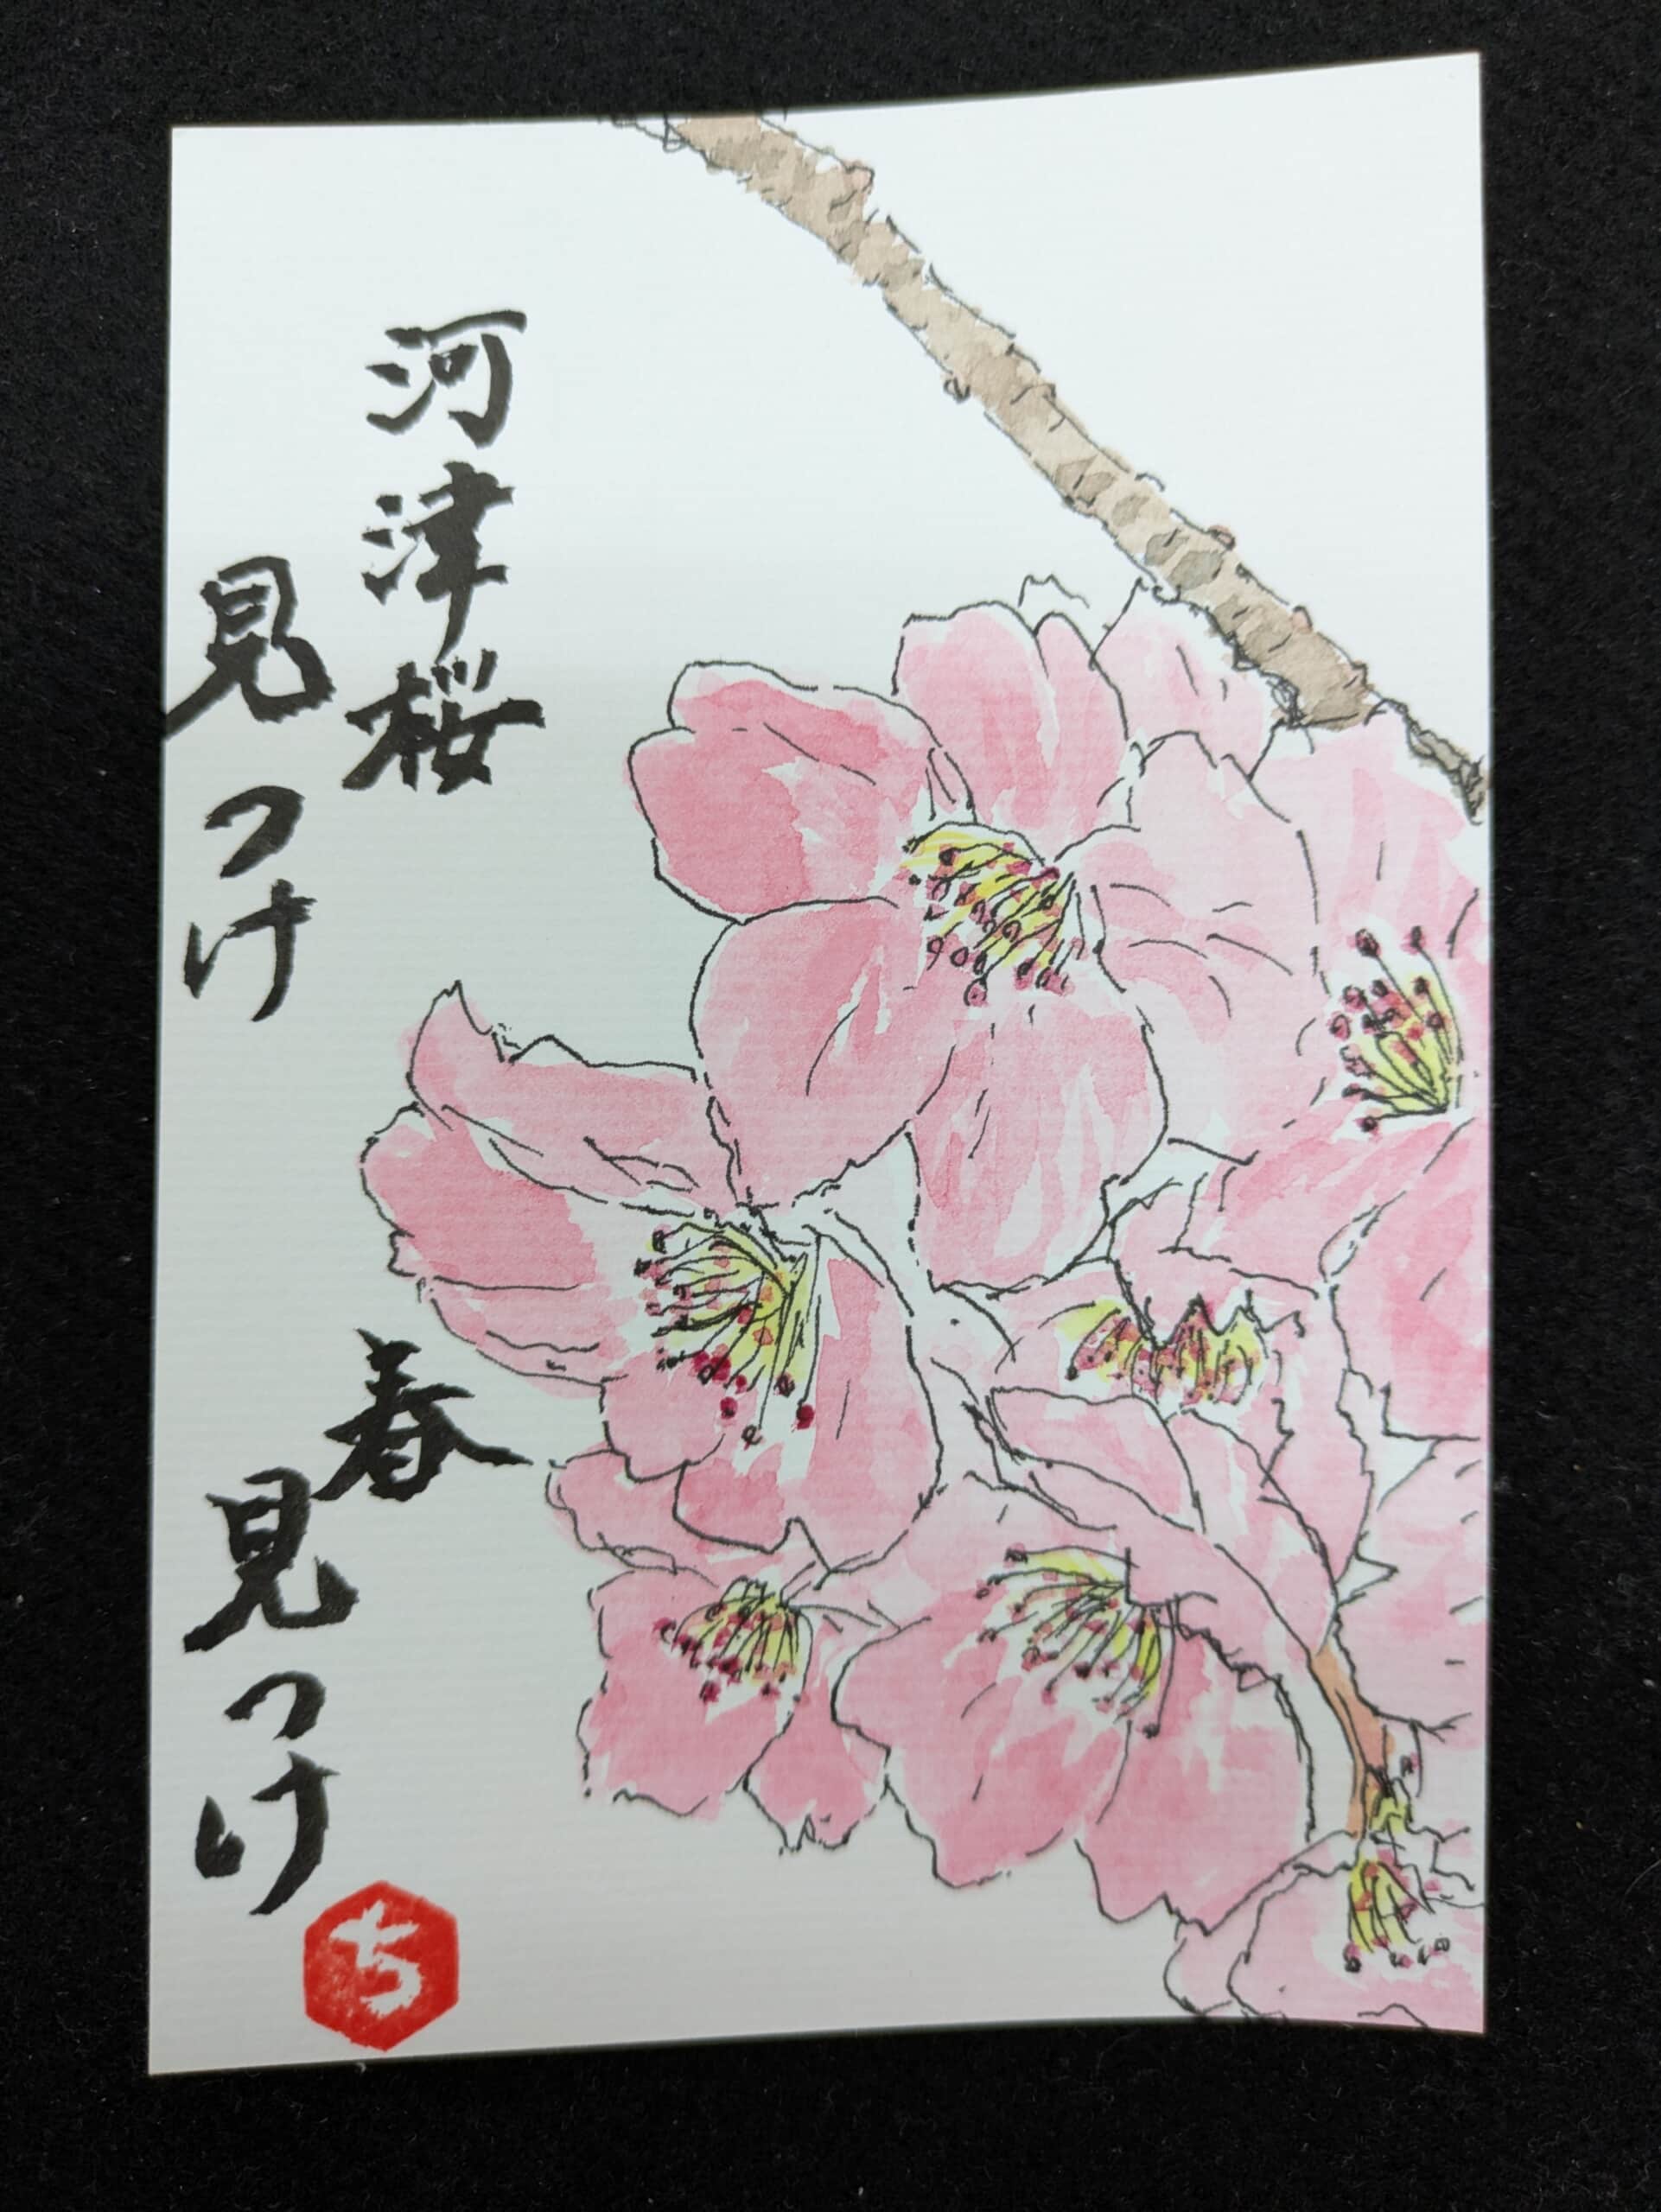 河津桜
見つけ
春
見っけ
ち